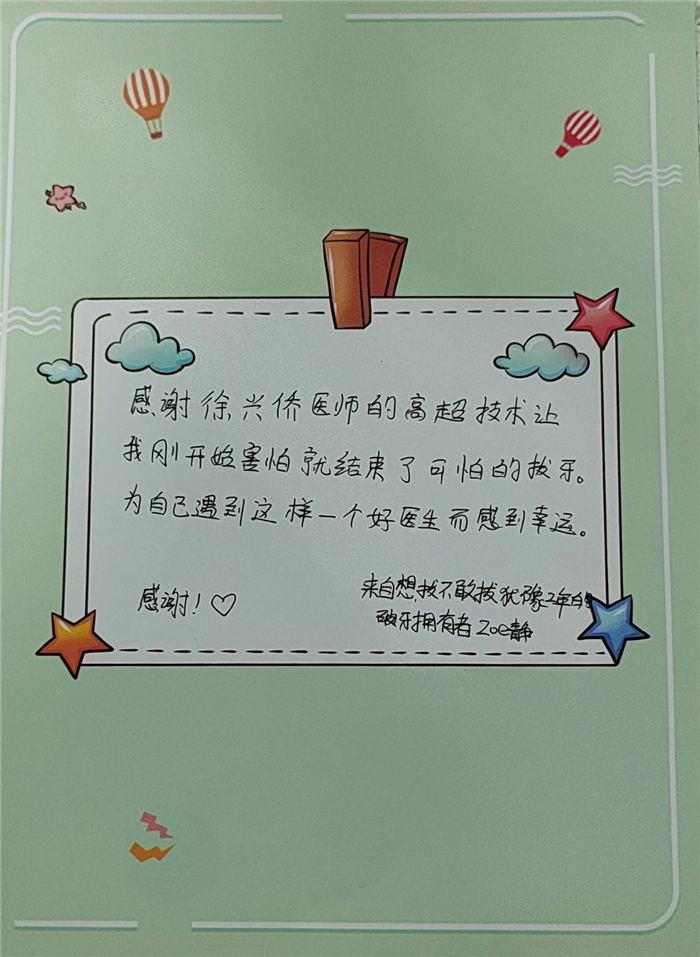 感谢徐兴侨医师的高超技术让
我刚开始害怕就结束了可怕的拔牙。
为自己遇到这样一个好医生而感到幸运。
感谢！♡
来自想拔不敢拔犹豫2年
破牙拥有者Zoe静